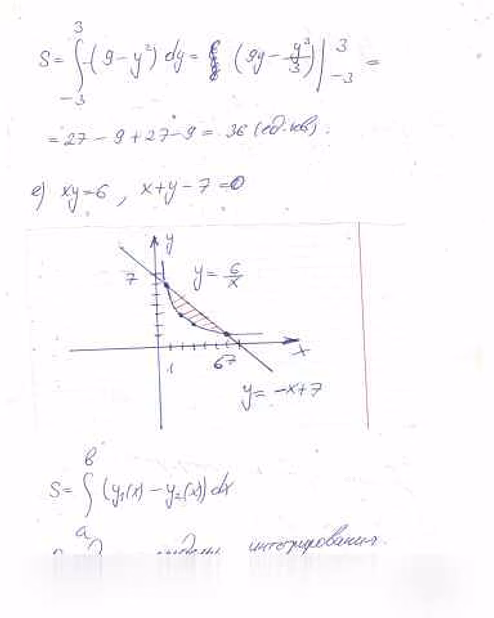 S = ∫₋₃³ (9 − y²) dy = (9y − y³/3) |₋₃³ =
= 27 − 9 + 27 − 9 = 36 (ед. кв).
е) xy = 6 , x + y − 7 = 0
y
7
y = 6/x
1
6 7
x
y = −x + 7
S = ∫ₐᵇ (y₁(x) − y₂(x)) dx
интегрирования.